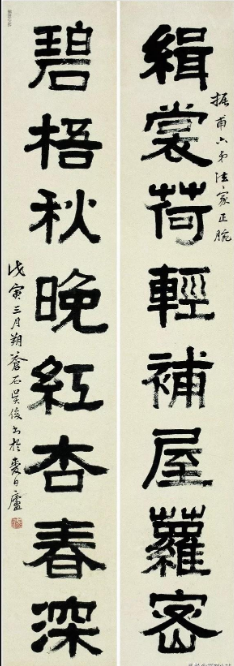 振甫六弟法家正腕
緝裳荷輕補屋蘿密
碧梧秋晚紅杏春深
戊寅三月朔蒼石吳俊書於白廬